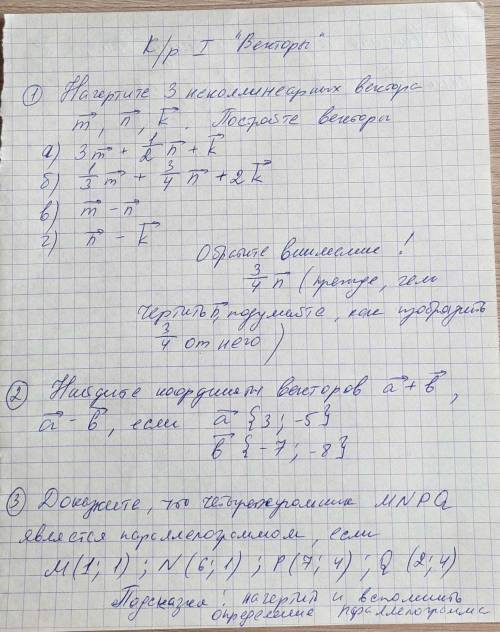 К/р I "Векторы"
① Начертите 3 неколлинеарных вектора
m⃗, n⃗, k⃗. Постройте векторы
а) 3m⃗ + 1/2 n⃗ + k⃗
б) 1/3 m⃗ + 3/4 n⃗ + 2k⃗
в) m⃗ - n⃗
г) n⃗ - k⃗
Обратите внимание!
3/4 n⃗ (прежде, чем
чертить n⃗, подумайте, как изобразить
3/4 от него)
② Найдите координаты векторов a⃗+b⃗,
a⃗ - b⃗, если a⃗ {3; -5}
b⃗ {-7; -8}
③ Докажите, что четырехугольник MNPQ
является параллелограммом, если
M(1; 1); N(6; 1); P(7; 4); Q(2; 4)
Подсказка: начертить и вспомнить
определение параллелограмма